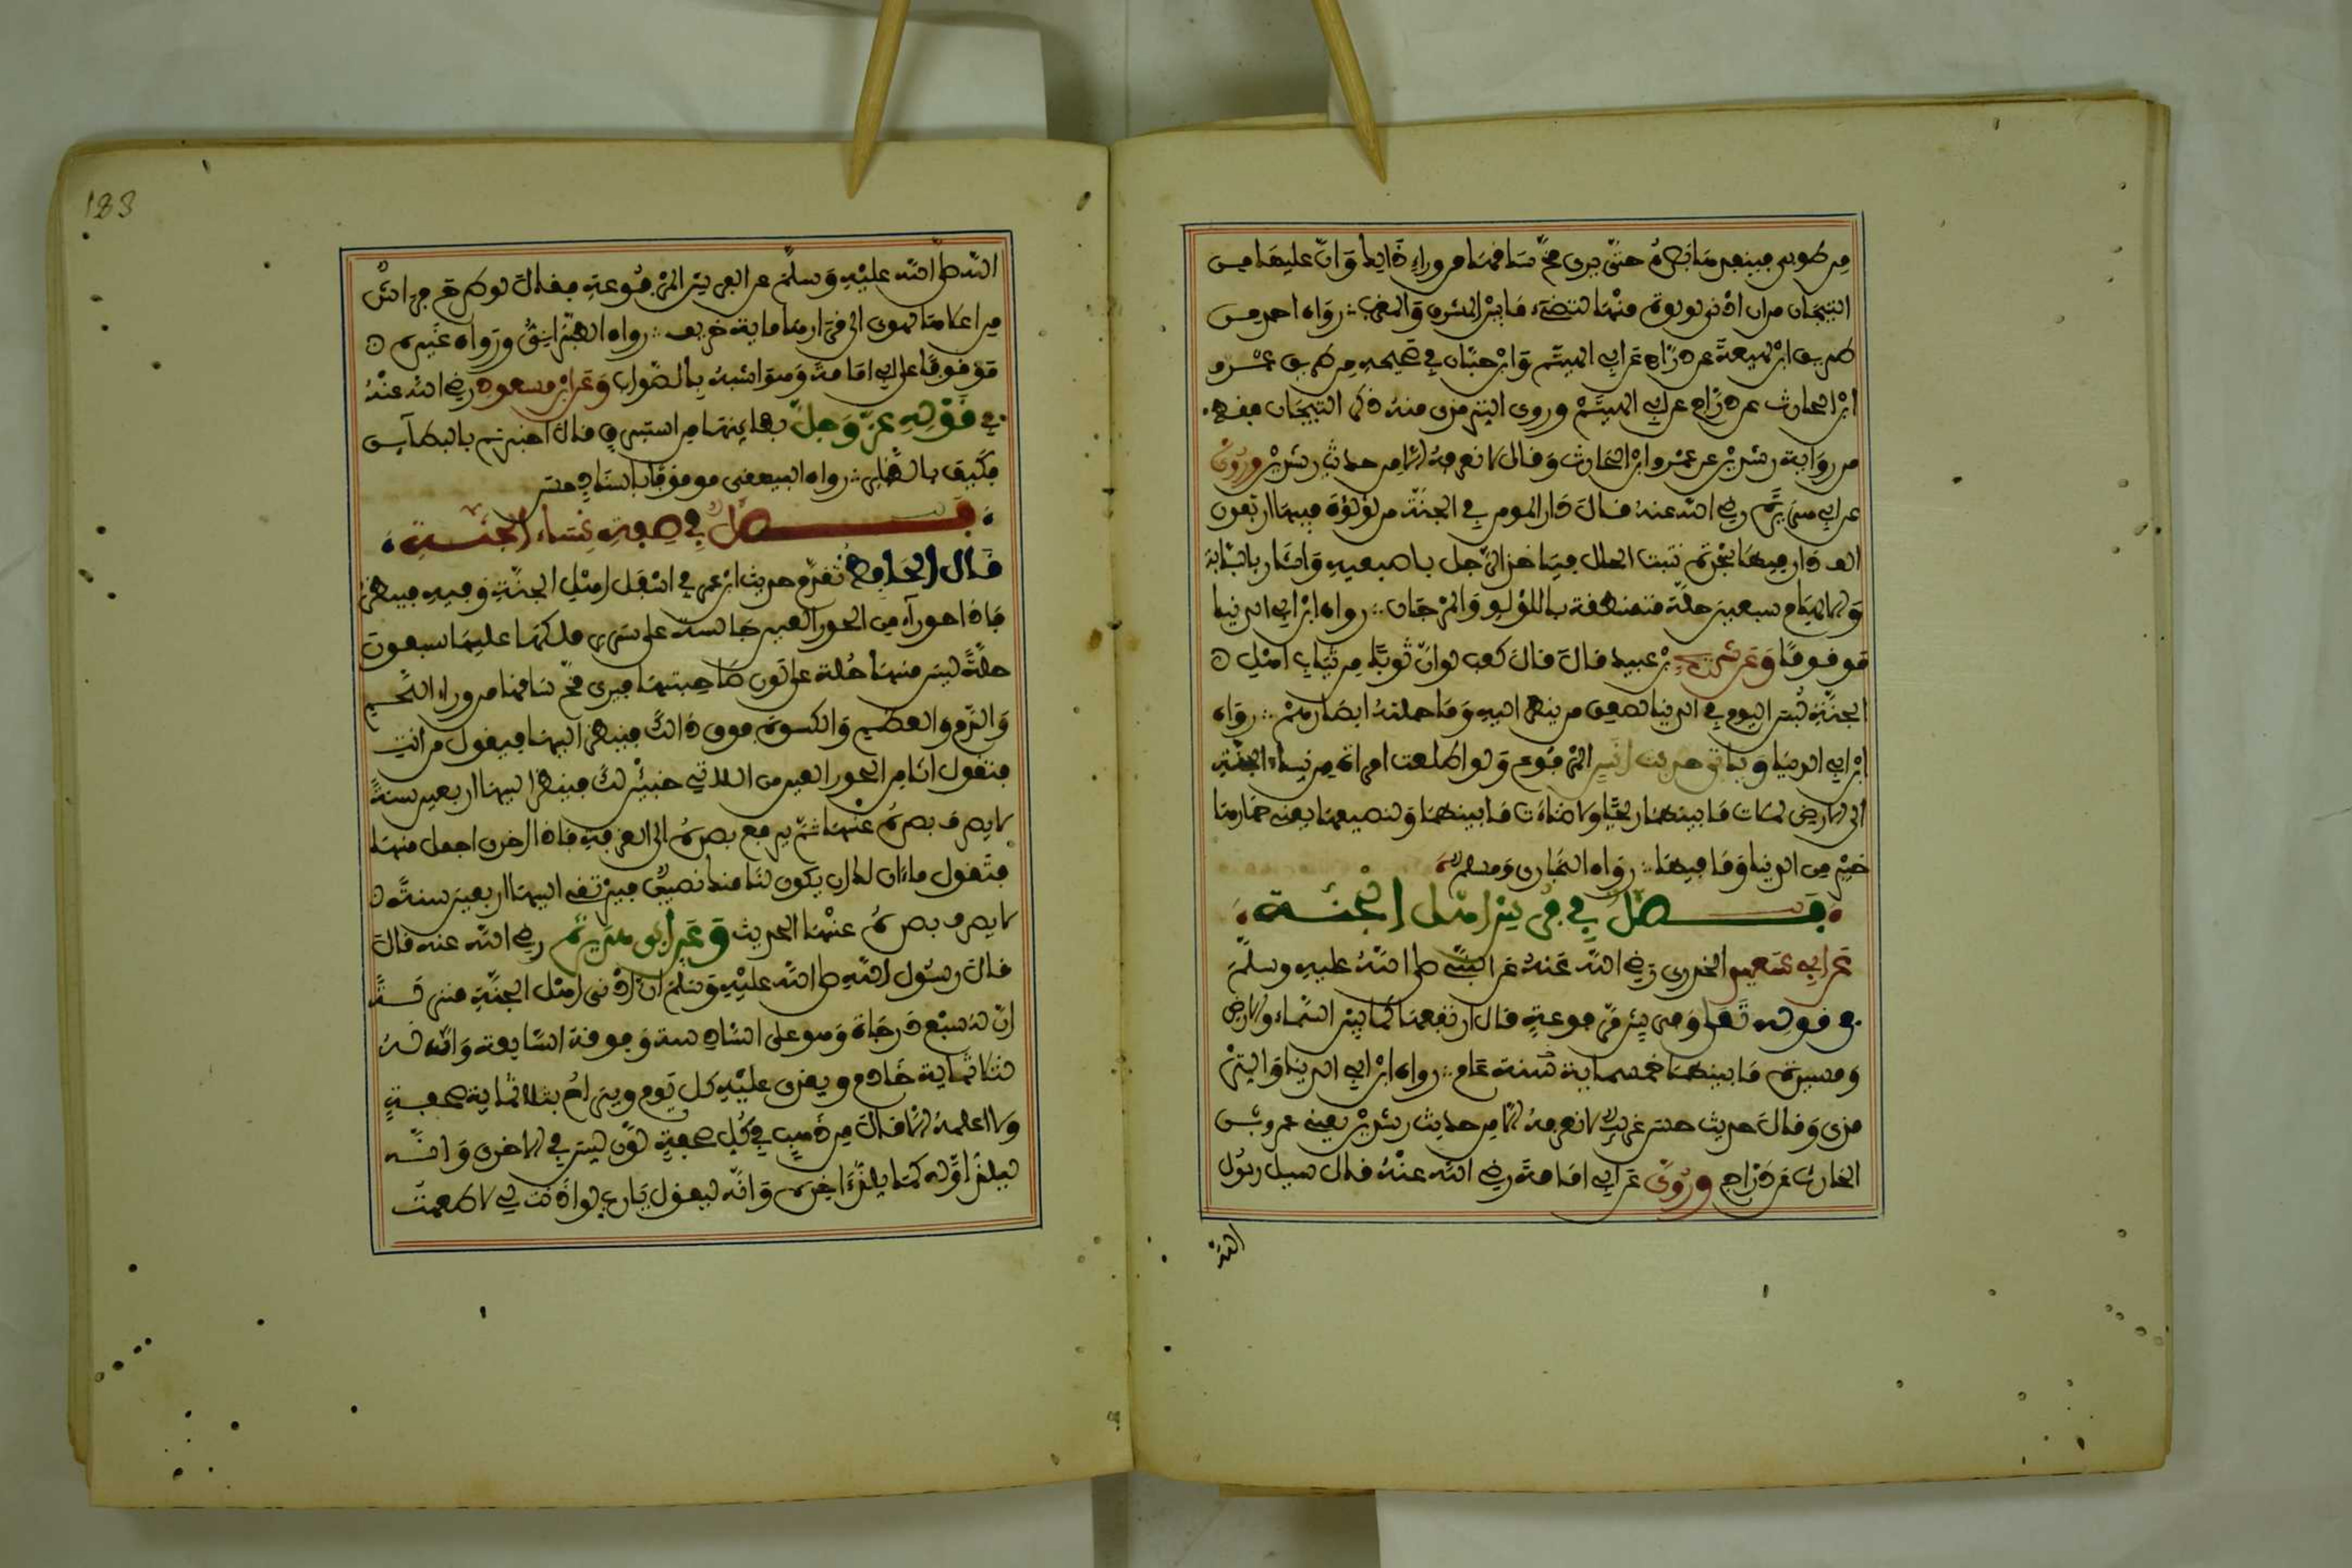 من طوبى فينفذها بصره حتى يرى مخ ساقها من وراء ذالك وان عليها من
التيجان من ان ادنى لولوة منها لتضيء ما بين المشرق والمغرب رواه احمد من
طريق ابن لهيعة عن دراج عن ابي الهيثم وابن حبان في صحيحه من طريق عمرو
ابن الحارث عن دراج عن ابي الهيثم وروى الترمذي منه ذكر التيجان فقط
من رواية رشدين عن عمرو ابن الحارث وقال لا نعرفه الا من حديث رشدين وروي
عن ابي هريرة رضي الله عنه قال دار المومن في الجنة من لؤلؤة فيها اربعون
الف دار فيها شجرة تنبت الحلل فياخذ الرجل باصبعيه واشار بالسبابة
والابهام سبعين حلة متمنطقة باللؤلو والمرجان رواه ابن ابي الدنيا
موقوفا وعن شريح بن عبيد قال قال كعب لو ان ثوبا من ثياب اهل
الجنة لبس اليوم في الدنيا لصعق من ينظر اليه وما حملته ابصارهم رواه
ابن ابي الدنيا وياتي حديث انس المرفوع ولو اطلعت امراة من نساء الجنة
الى الارض لملات ما بينهما ريحا ولاضاءت ما بينهما ولنصيفها يعني خمارها
خير من الدنيا وما فيها رواه البخاري ومسلم
فصل في فرش اهل الجنة
عن ابي سعيد الخدري رضي الله عنه عن النبي صلى الله عليه وسلم
في قوله تعلى وفرش مرفوعة قال ارتفعها كما بين السماء والارض
ومسيرة ما بينهما خمسماية سنة عام رواه ابن ابي الدنيا والتر
مذي وقال حديث حسن غريب لا نعرفه الا من حديث رشدين يعني عمرو بن
الحارث عن دراج وروي عن ابي امامة رضي الله عنه قال سيل رسول
الله
183
الله صلى الله عليه وسلم عن الفرش المرفوعة فقال لو طرح فراش
من اعلاها لهوى الى قرارها ماية خريف رواه الطبراني ورواه غيره
موقوفا على ابي امامة وهو اشبه بالصواب وعن ابن مسعود رضي الله عنه
في قوله عز وجل بطاينها من استبرق قال اخبرتم بالبطاين
فكيف بالظهاير رواه البيهقي موقوفا باسناد حسن
فصل في صفة نساء الجنة
قال الحافظ تقدم حديث ابن عمر في اسفل اهل الجنة وفيه فينظر
فاذا حوراء من الحور العين جالسة على سرير ملكها عليها سبعون
حلة ليس منها حلة على لون صاحبتها فيرى مخ ساقها من وراء اللحم
والدم والعظم والكسوة فوق ذالك فينظر اليها فيقول من انت
فتقول انا من الحور العين من اللاتي خبئن لك فينظر اليها اربعين سنة
لا يصرف بصره عنها ثم يرفع بصره الى الغرفة فاذا اخرى اجمل منها
فتقول ماءان لك ان يكون لنا منك نصيب فيرتقي اليها اربعين سنة
لا يصرف بصره عنها الحديث وعن ابي هريرة رضي الله عنه قال
قال رسول الله صلى الله عليه وسلم ان ادنى اهل الجنة منزلة
ان له سبع درجاة وهو على السادسة وفوقه السابعة وانه له
ثلاثماية خادم ويغدى عليه كل يوم ويراح بثلاثماية صحفة
ولا اعلمه الا قال من ذهب في كل صحفة لون ليس في الاخرى وانه
ليلذ اوله كما يلذ ءاخره وانه ليقول يارب لو اذنت لي لاطعمت